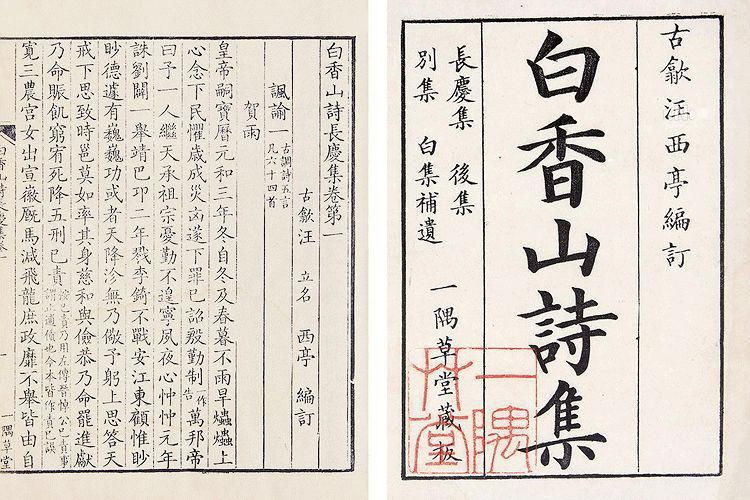 古歙汪西亭編訂
白香山詩集
長慶集 後集
別集 白集補遺
一隅草堂藏板
一隅草堂
白香山詩長慶集卷第一
古歙汪 立名 西亭 編訂
諷諭一 古調詩五言 凡六十四首
賀雨
皇帝嗣寶曆元和三年冬自冬及春暮不雨旱爞爞上
心念下民懼歲成災凶遂下罪已詔殷勤制一作告萬邦帝
曰予一人繼天承祖宗憂勤不遑寧夙夜心忡忡元年
誅劉闢一舉靖巴卭二年戮李錡不戰安江東顧惟眇
眇德遽有巍巍功或者天降沴無乃儆予躬上思答天
戒下思致時邕莫如率其身慈和與儉恭乃命罷進獻
乃命賑飢窮宥死降五刑已責 已責乃用左傳晉悼公已責事 謂止逋債也今本皆作責已誤
寬三農宮女出宣徽廐馬減飛龍庶政靡不舉皆由自
白香山詩長慶集卷一
一隅草堂